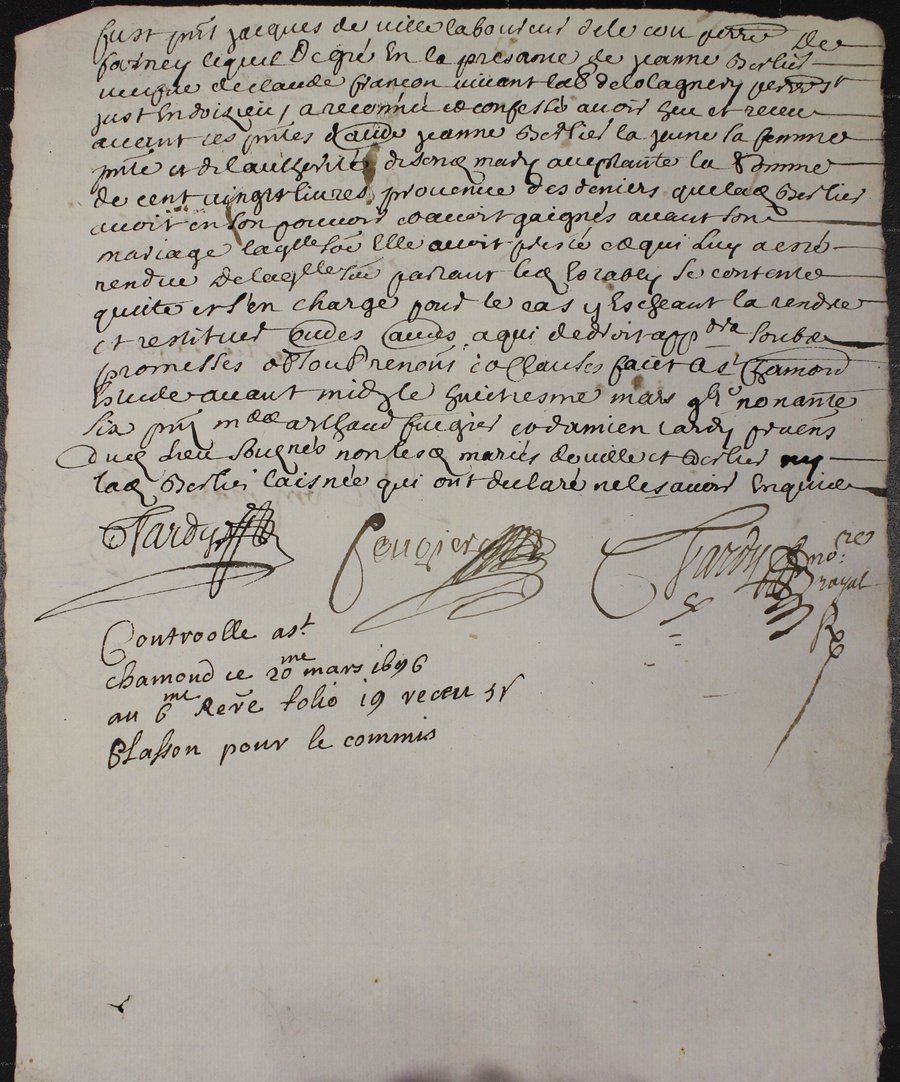 fust pnt jacques de ville laboureur de le cou perre de
farney lequel De gré En la presance de jeanne Berlier
veufve de claude françon vivant lab de Colagnery perr st
just En doizieu, a reconnu et confessé avoir heu et receu
avant ces pntes d'aude jeanne Berlier la jeune sa femme
pnte et de l'authorité de son mary acceptante la somme
de cent vingt livres provenue des deniers que lad Berlier
avoit en son pouvoir et avoit gaignés avant son
mariage laqlle soe Elle avoit presté et qui luy a esté
rendue De laqlle soe partant led se contente
quitte et s'en charge pour le cas y Escheant la rendre
et restituer a qui de droit app dra soubz
promesses obl soub renon clauses faict a st Chamond
Estude avant midy le huictiesme mars nonante
six pnt arthaud fugier et damien tardy
soubsignés non lesd mariés deville et Berlier ny
lad Berlier laisnée qui ont declaré ne le sçavoir Enquis
Tardy
feugier
Tardy no.re
royal
Controolle a st
chamond ce 20me mars 1696
au 6me Re̅re folio 19 receu
Blasson pour le commis